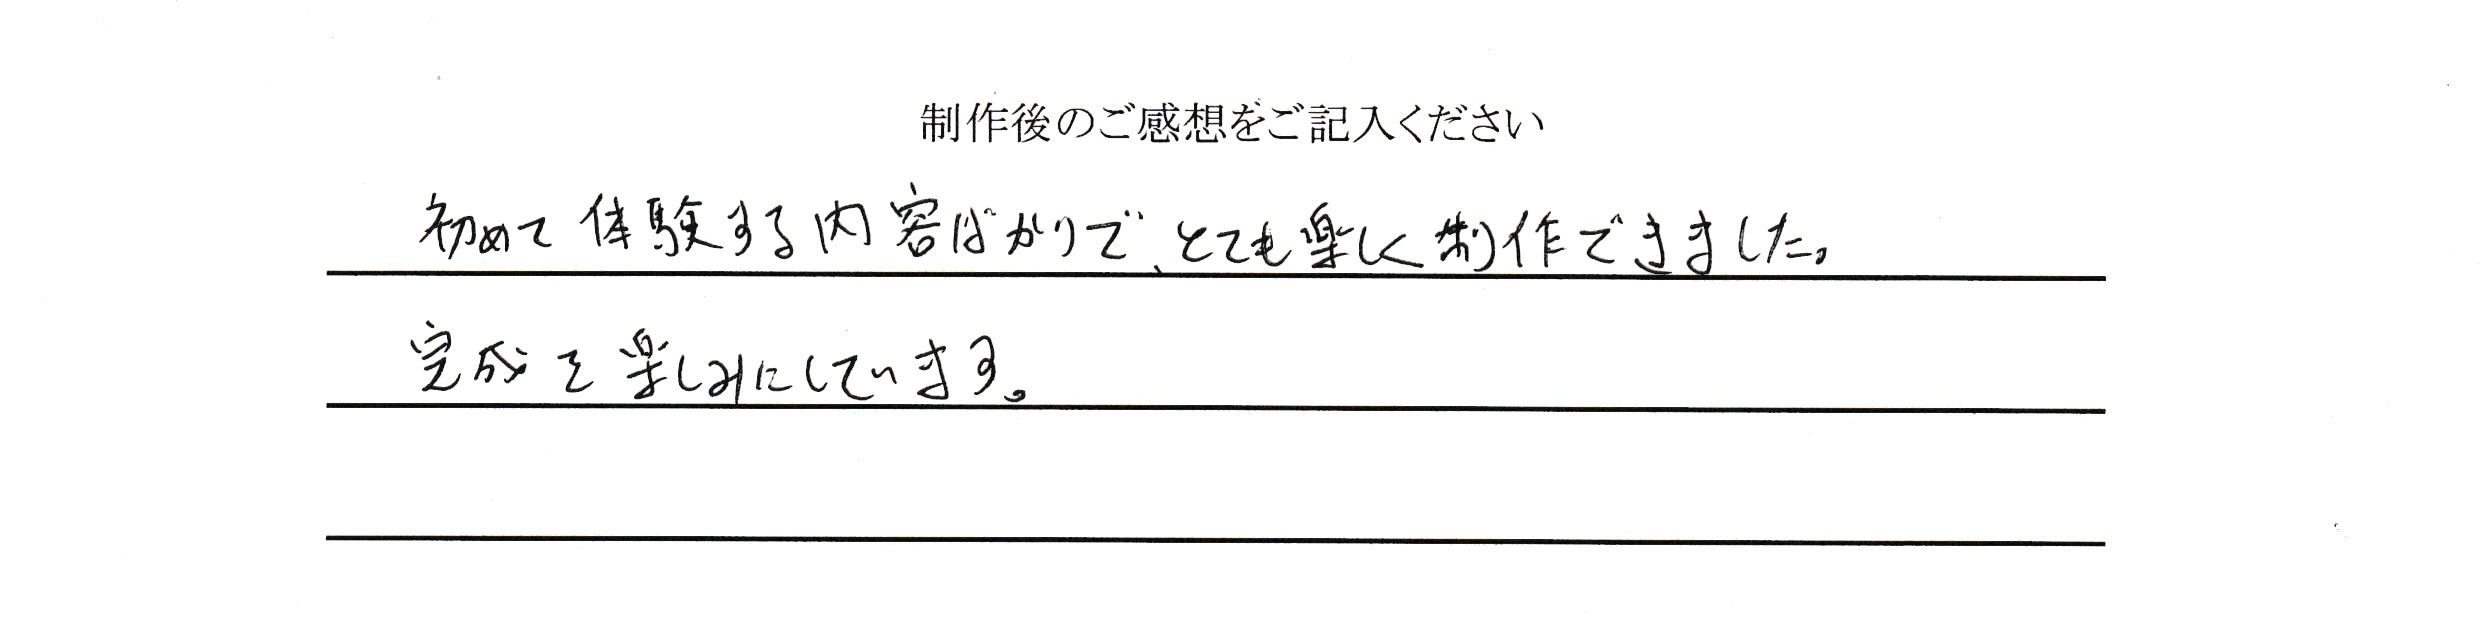 制作後のご感想をご記入ください
初めて体験する内容ばかりで、とても楽しく制作できました。
完成を楽しみにしています。